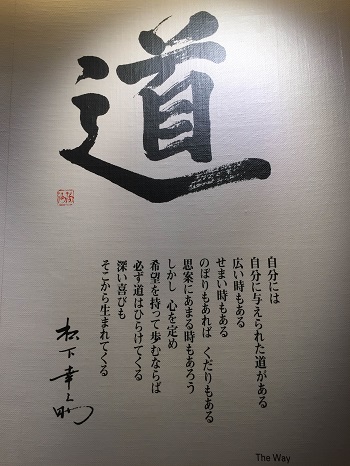 道
自分には
自分に与えられた道がある
広い時もある
せまい時もある
のぼりもあれば くだりもある
思案にあまる時もあろう
しかし 心を定め
希望を持って歩むならば
必ず道はひらけてくる
深い喜びも
そこから生まれてくる
松下幸之助
The Way